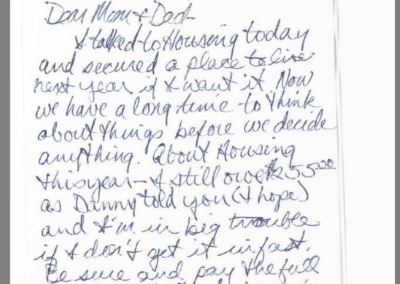 Dear Mom & Dad-
I talked to Housing today
and secured a place to live
next year if I want it. Now
we have a long time to think
about things before we decide
anything. About Housing
this year - I still owe $255.00
as Danny told you (I hope)
and I'm in big trouble
if I don't get it in fast.
Be sure and pay the full